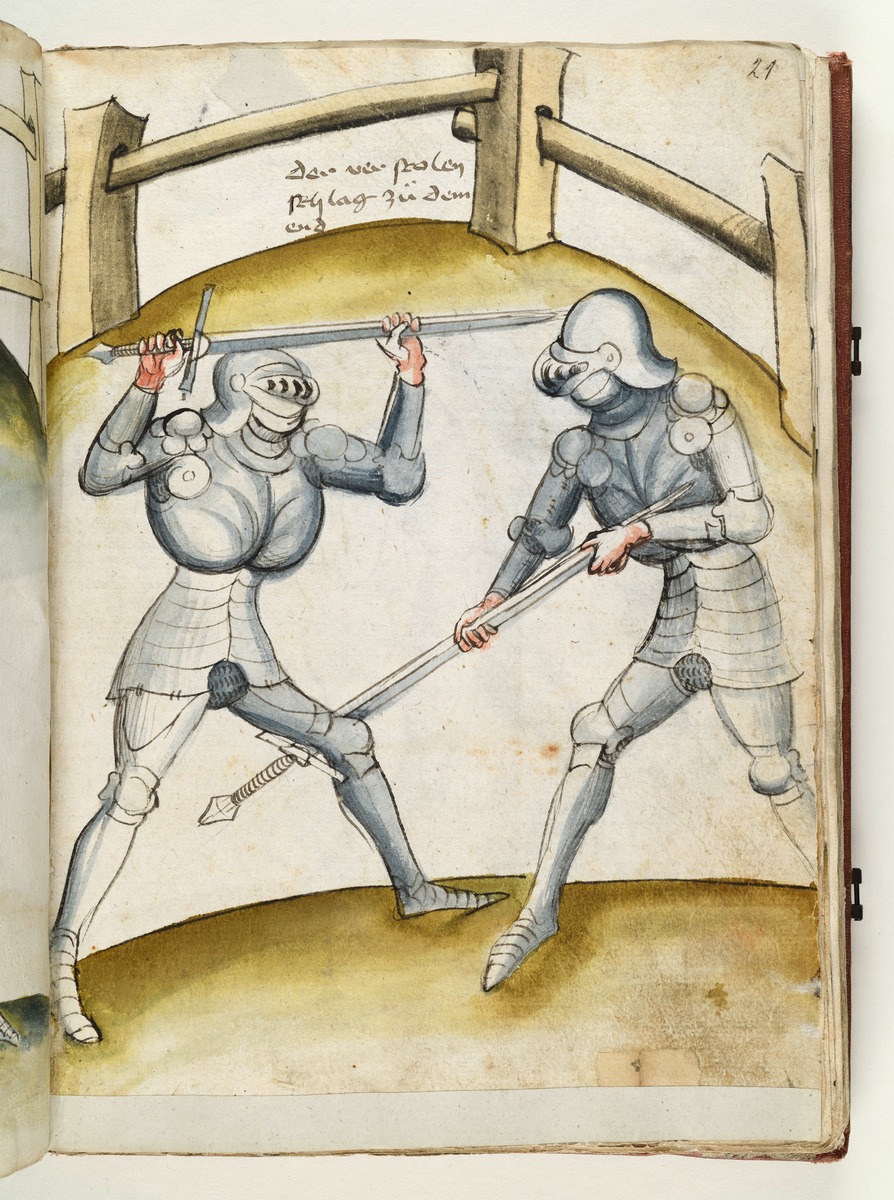 21
der ver stolen
schlag zü dem
end